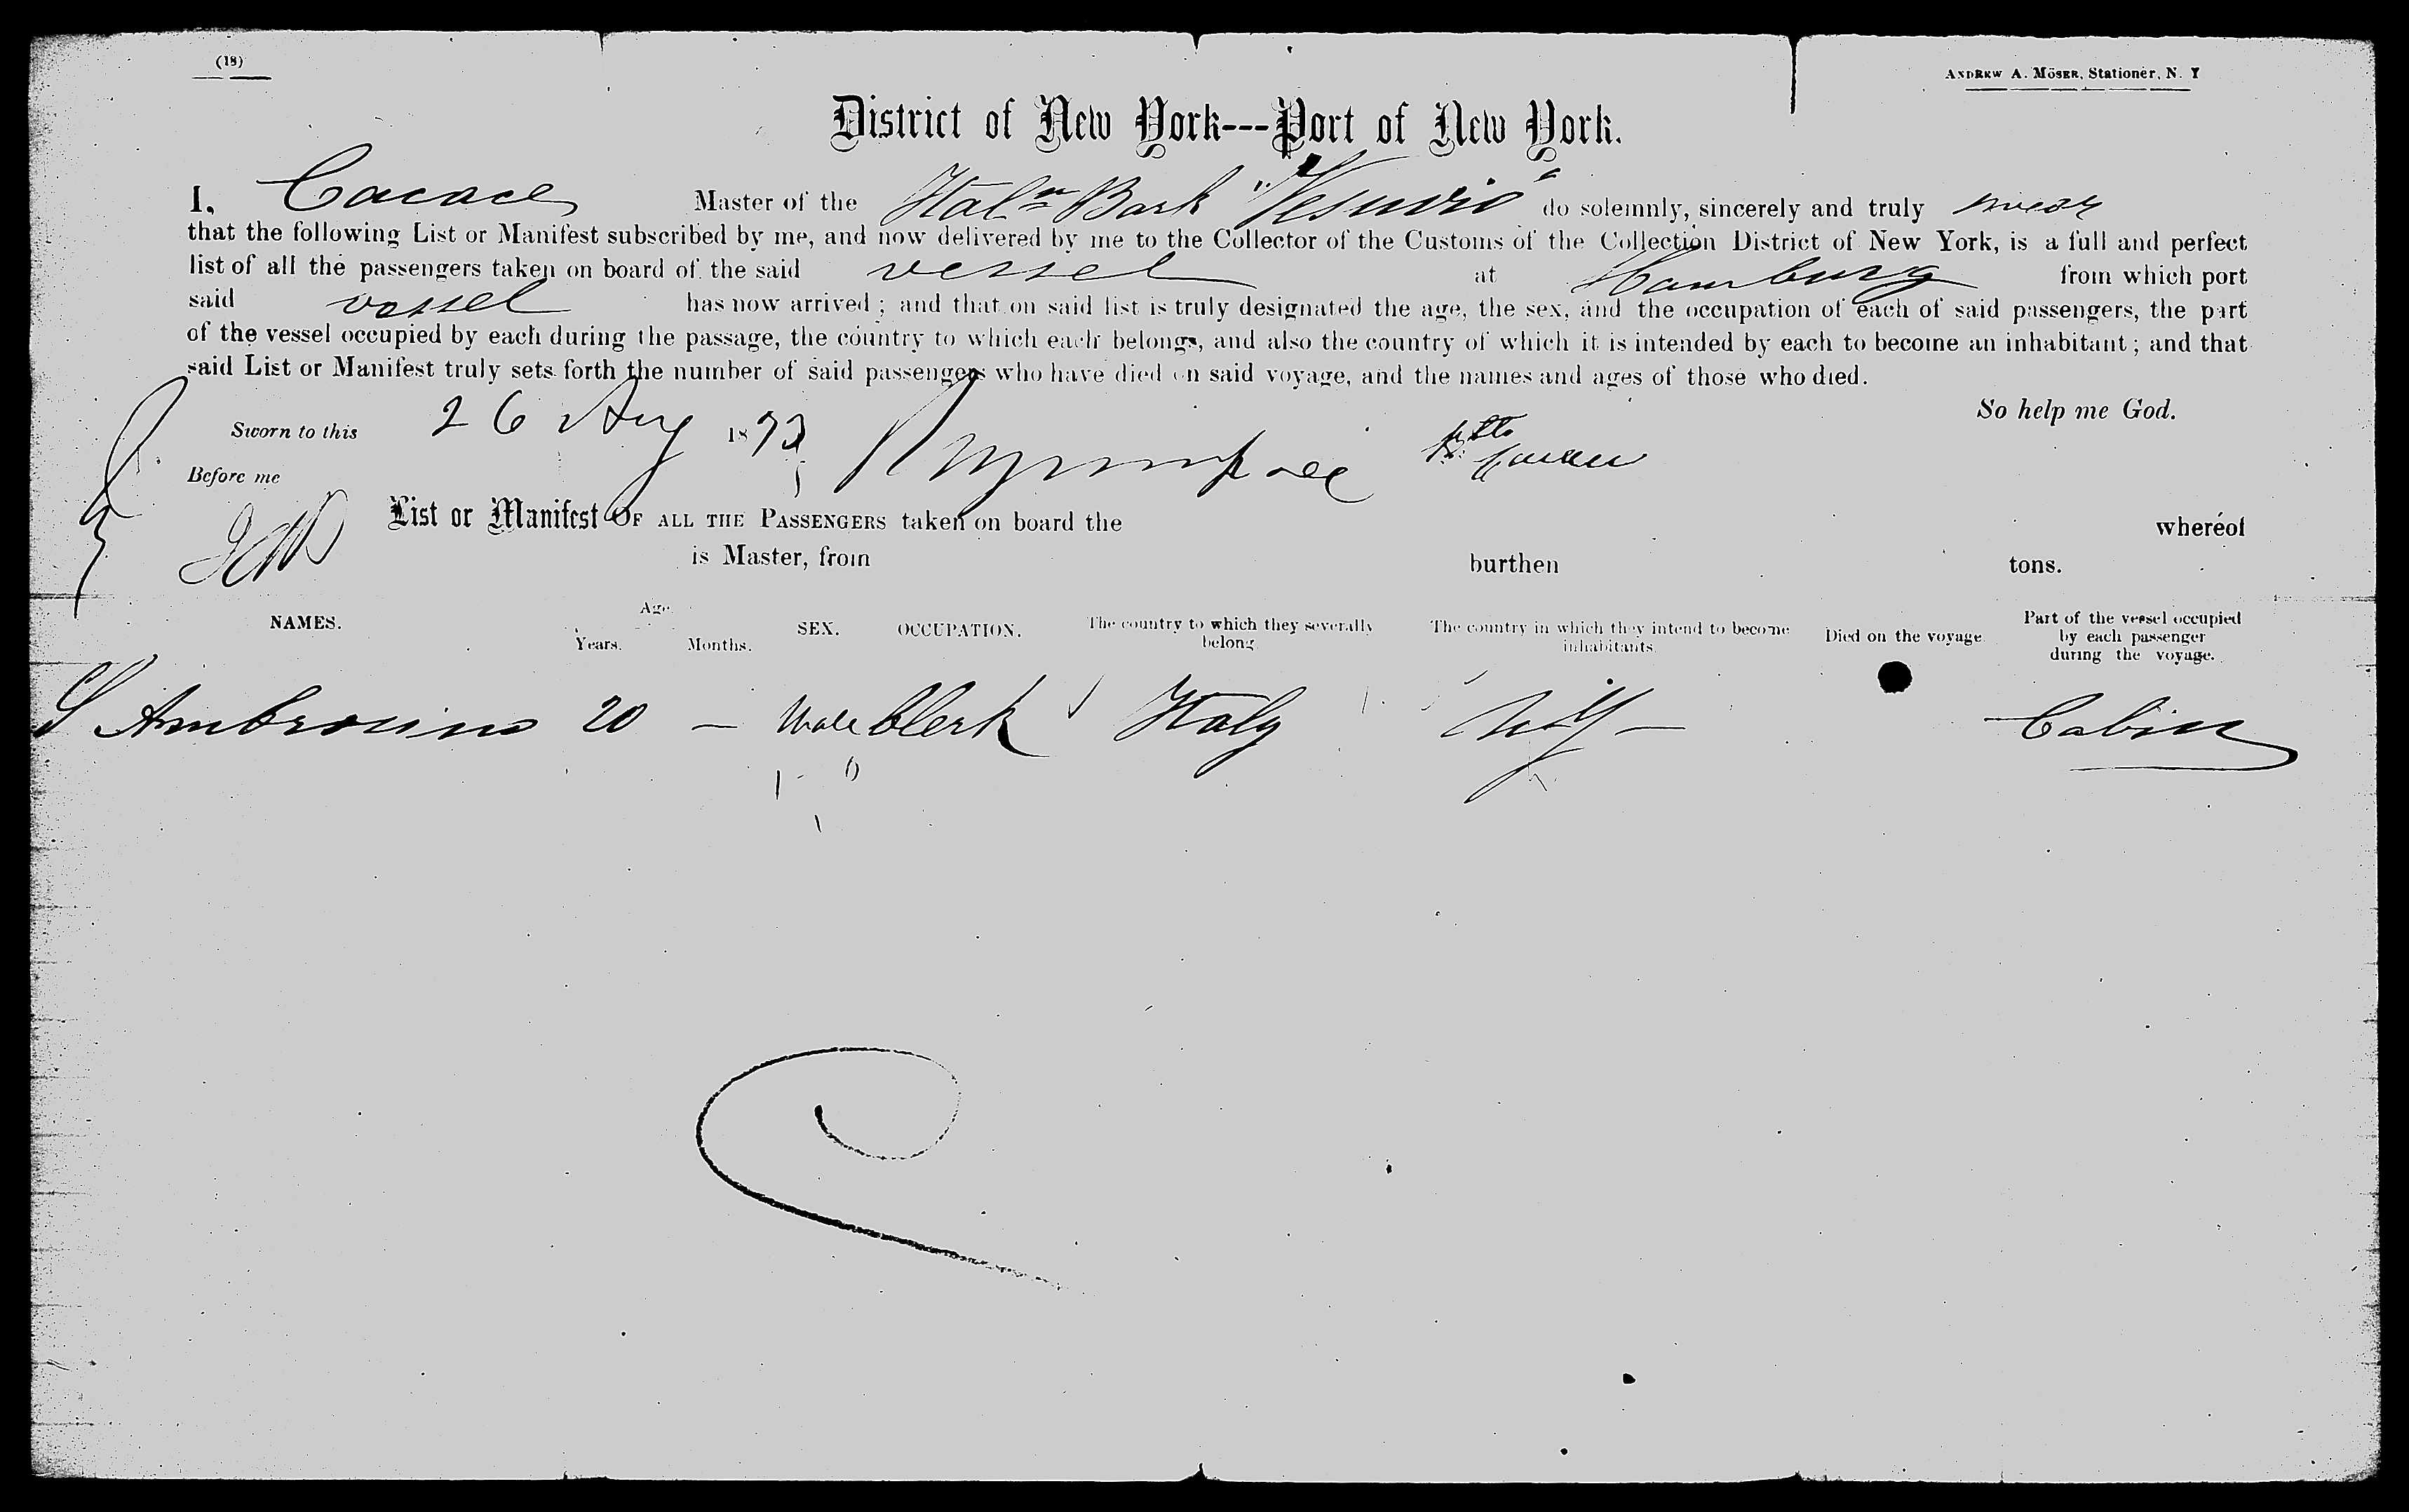 (18)
ANDREW A. MÖSER, Stationer, N. Y
District of New York---Port of New York.
I, Cacace Master of the Italn Bark "Vesuvio" do solemnly, sincerely and truly swear
that the following List or Manifest subscribed by me, and now delivered by me to the Collector of the Customs of the Collection District of New York, is a full and perfect
list of all the passengers taken on board of the said vessel at Hamburg from which port
said vessel has now arrived ; and that on said list is truly designated the age, the sex, and the occupation of each of said passengers, the part
of the vessel occupied by each during the passage, the country to which each belongs, and also the country of which it is intended by each to become an inhabitant ; and that
said List or Manifest truly sets forth the number of said passengers who have died on said voyage, and the names and ages of those who died.
So help me God.
Sworn to this 26 Aug 1873
Before me
List or Manifest OF ALL THE PASSENGERS taken on board the whereof
is Master, from burthen tons.
NAMES. Age. Years. Months. SEX. OCCUPATION. The country to which they severally belong. The country in which they intend to become inhabitants. Died on the voyage. Part of the vessel occupied by each passenger during the voyage.
S Ambrosino 20 — Male Clerk Italy NY — Cabin